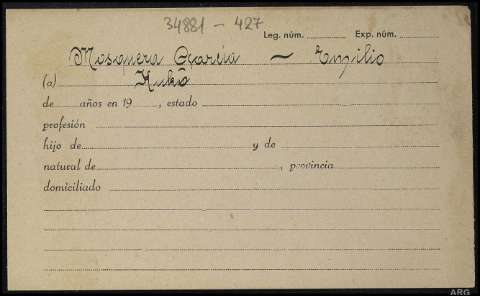 34881 - 427
Leg. núm. Exp. núm.
Mosquera García ~ Emilio
(a)
de años en 19 , estado
profesión
hijo de y de
natural de , provincia
domiciliado
ARG